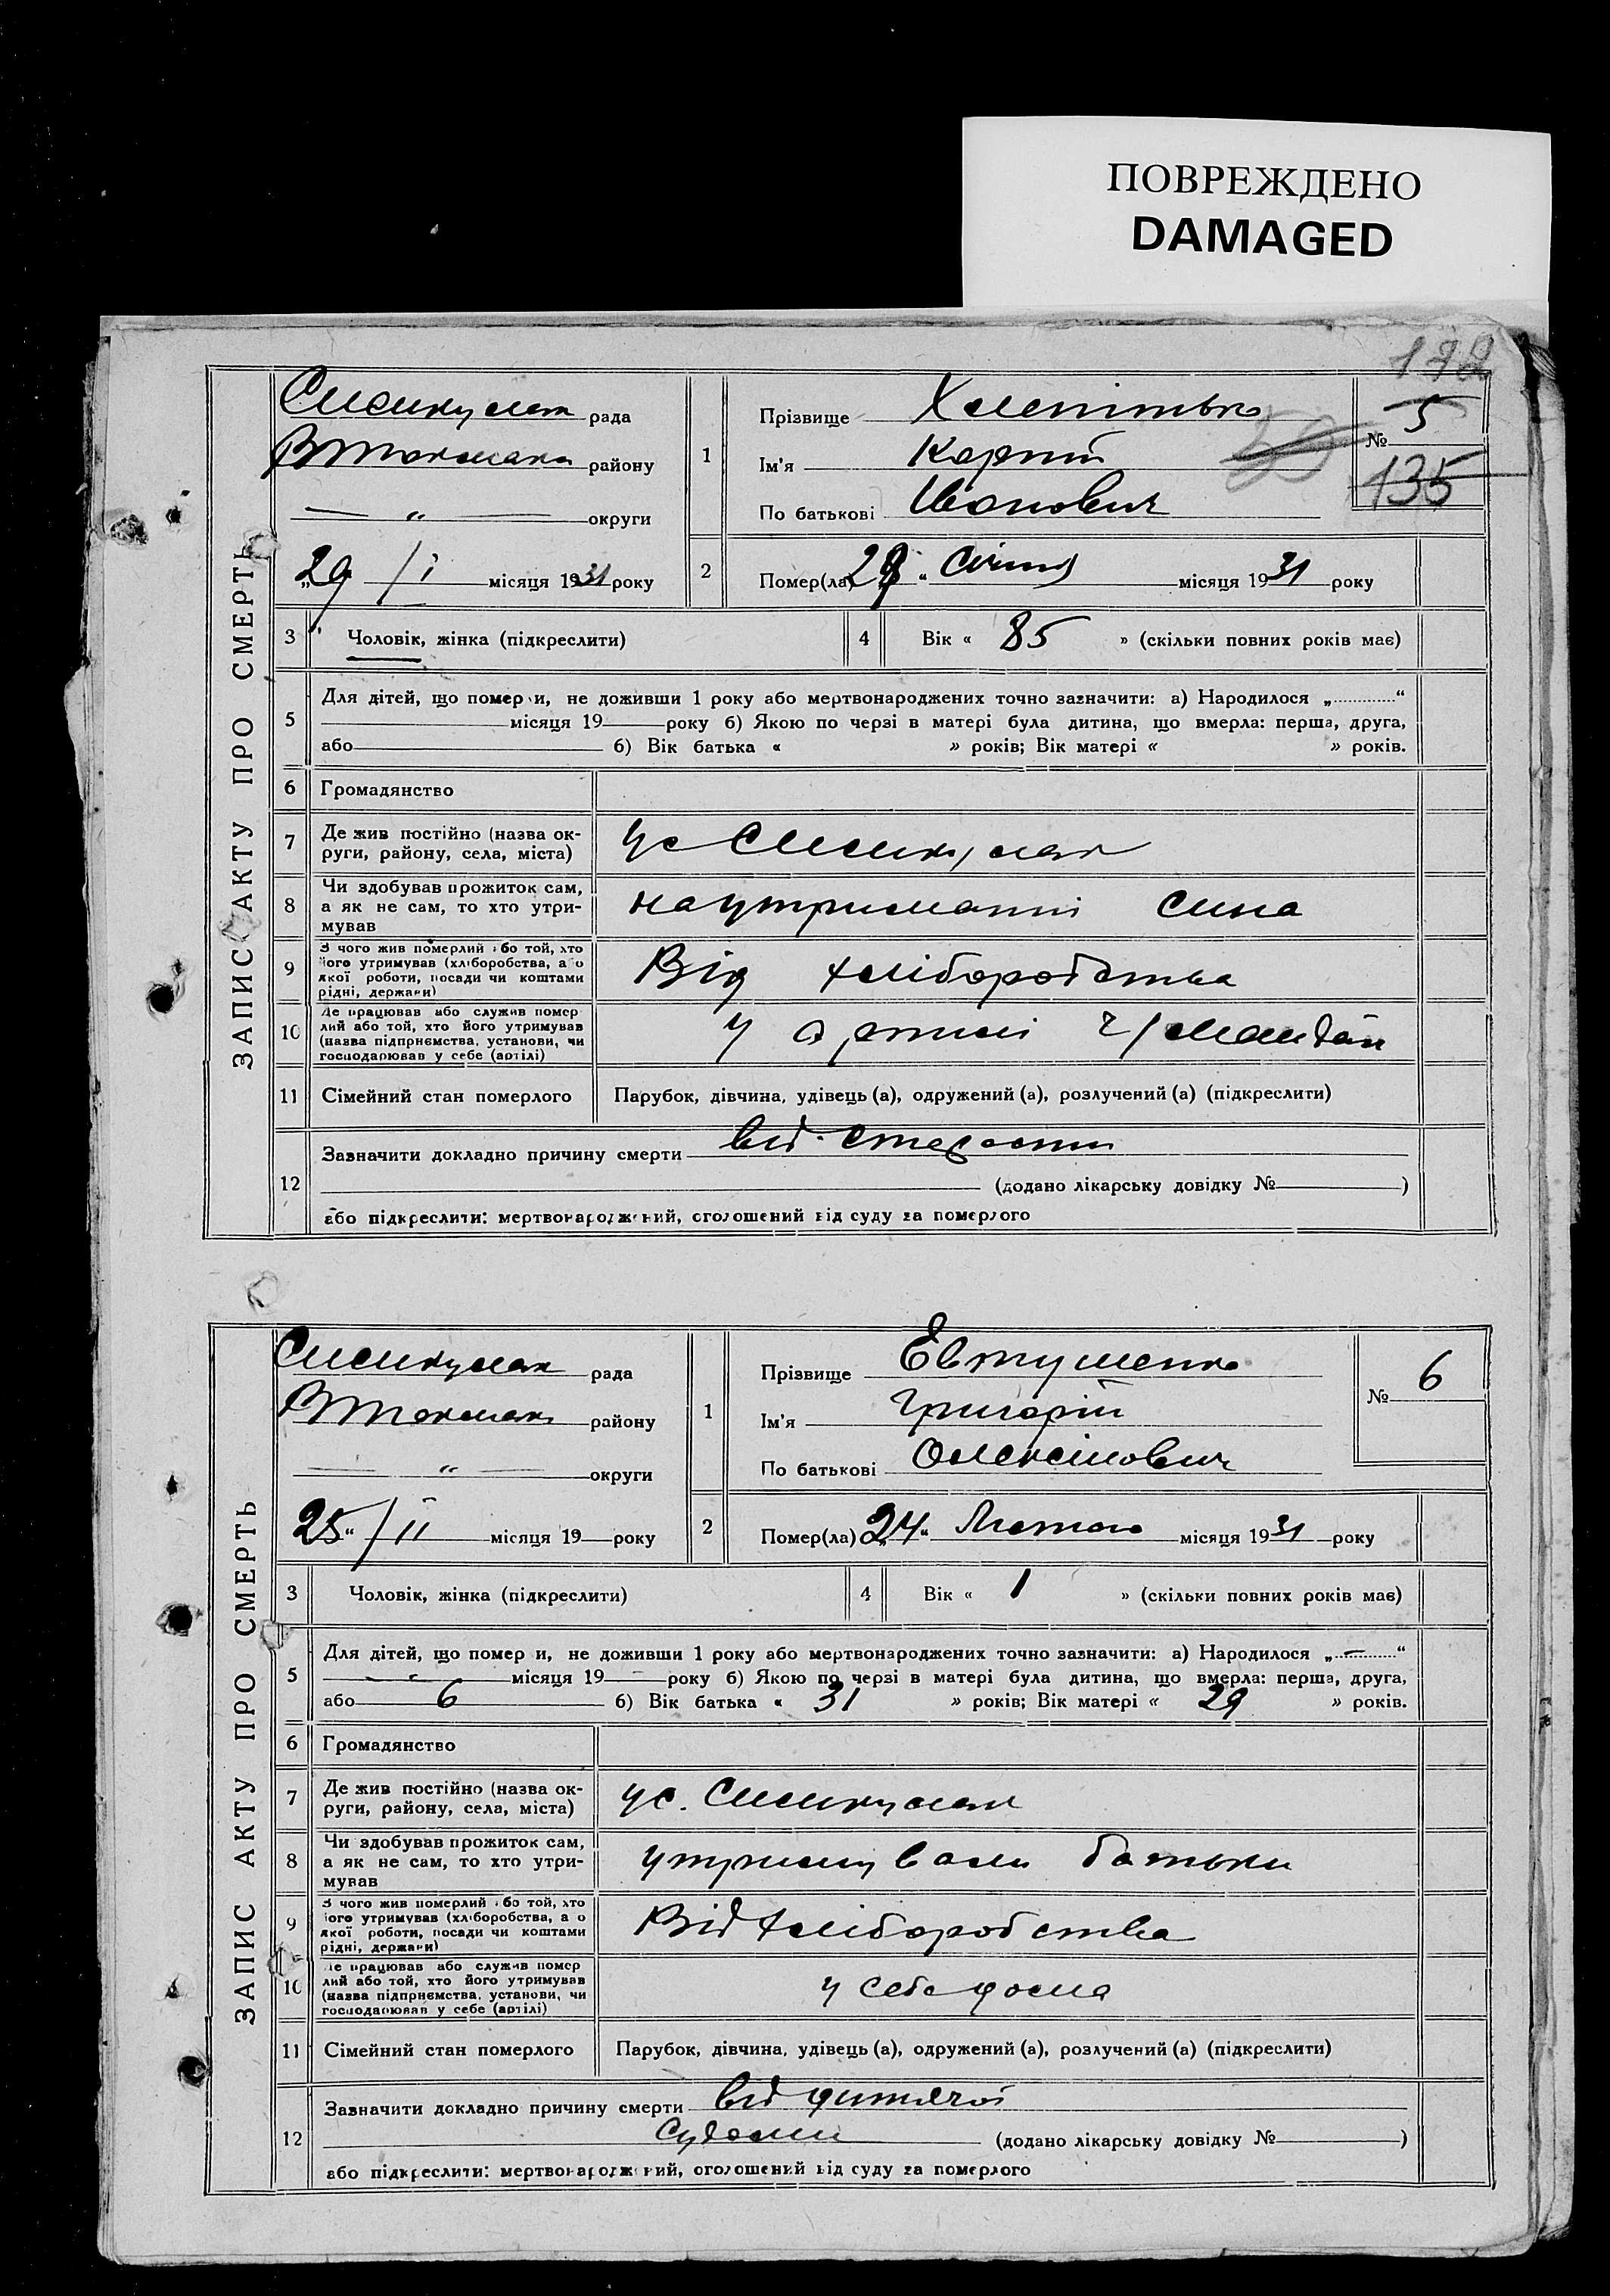 ПОВРЕЖДЕНО
DAMAGED
ЗАПИС АКТУ ПРО СМЕРТЬ
рада
Прізвище
5
району
1
Ім'я Корній
№
135
— „ — округи
По батькові Іванович
„29 / I місяця 1931 року
2
Помер(ла) 28 „ Січня місяця 1931 року
3
Чоловік, жінка (підкреслити)
4
Вік « 85 » (скільки повних років має)
5
Для дітей, що померли, не доживши 1 року або мертвонароджених точно зазначити: а) Народилося „ “
місяця 19 року б) Якою по черзі в матері була дитина, що вмерла: перша, друга,
або б) Вік батька « » років; Вік матері « » років.
6
Громадянство
7
Де жив постійно (назва ок-
руги, району, села, міста)
у с
8
Чи здобував прожиток сам,
а як не сам, то хто утри-
мував
на утриманні сина
9
З чого жив померлий або той, хто
його утримував (хліборобства, або
якої роботи, посади чи коштами
рідні, держави)
Від хліборобства
10
Де працював або служив помер
лий або той, хто його утримував
(назва підприємства, установи, чи
господарював у себе (артілі)
у артилі
11
Сімейний стан померлого
Парубок, дівчина, удівець (а), одружений (а), розлучений (а) (підкреслити)
12
Зазначити докладно причину смерти від старости
(додано лікарську довідку № )
або підкреслити: мертвонароджений, оголошений від суду за померлого
ЗАПИС АКТУ ПРО СМЕРТЬ
рада
Прізвище Евтушенко
6
району
1
Ім'я Григорій
№
— „ — округи
По батькові Олексійович
25 „ / II місяця 19 року
2
Помер(ла) „24 “ Лютого місяця 1931 року
3
Чоловік, жінка (підкреслити)
4
Вік « 1 » (скільки повних років має)
5
Для дітей, що померли, не доживши 1 року або мертвонароджених точно зазначити: а) Народилося „ — “
місяця 19 року б) Якою по черзі в матері була дитина, що вмерла: перша, друга,
або 6 б) Вік батька « 31 » років; Вік матері « 29 » років.
6
Громадянство
7
Де жив постійно (назва ок-
руги, району, села, міста)
у с.
8
Чи здобував прожиток сам,
а як не сам, то хто утри-
мував
утримували батьки
9
З чого жив померлий або той, хто
його утримував (хліборобства, або
якої роботи, посади чи коштами
рідні, держави)
Від хліборобства
10
Де працював або служив помер
лий або той, хто його утримував
(назва підприємства, установи, чи
господарював у себе (артілі)
у себе дома
11
Сімейний стан померлого
Парубок, дівчина, удівець (а), одружений (а), розлучений (а) (підкреслити)
12
Зазначити докладно причину смерти від дитячої
Судоми (додано лікарську довідку № )
або підкреслити: мертвонароджений, оголошений від суду за померлого